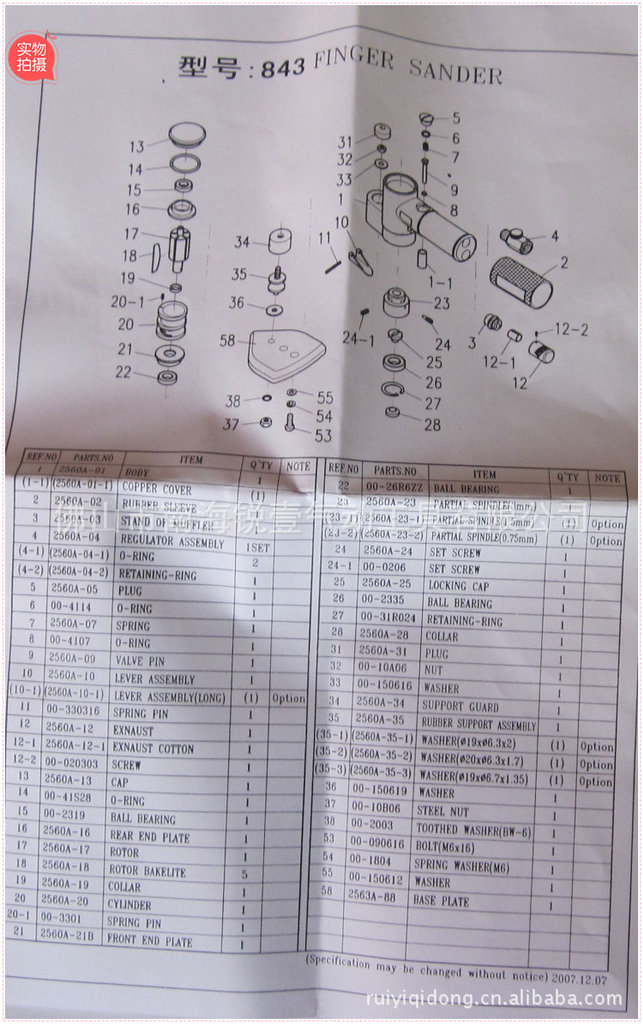 实物
拍摄
型号:843 FINGER SANDER
13
14
15
16
17
18
19
20-1
20
21
22
34
35
36
58
38
37
55
54
53
31
32
33
1
10
11
5
6
7
9
8
1-1
4
2
23
24-1
24
25
26
27
28
3
12-1
12-2
12
REF.NO PARTS.NO ITEM Q'TY NOTE
1 2560A-01 BODY 1
(1-1) (2560A-01-1) COPPER COVER (1)
2 2560A-02 RUBBER SLEEVE 1
3 2560A-03 STAND OF MUFFLER 1
4 2560A-04 REGULATOR ASSEMBLY 1SET
(4-1) (2560A-04-1) O-RING 2
(4-2) (2560A-04-2) RETAINING-RING 1
5 2560A-05 PLUG 1
6 00-4114 O-RING 1
7 2560A-07 SPRING 1
8 00-4107 O-RING 1
9 2560A-09 VALVE PIN 1
10 2560A-10 LEVER ASSEMBLY 1
(10-1) (2560A-10-1) LEVER ASSEMBLY(LONG) (1) Option
11 00-330316 SPRING PIN 1
12 2560A-12 EXNAUST 1
12-1 2560A-12-1 EXNAUST COTTON 1
12-2 00-020303 SCREW 1
13 2560A-13 CAP 1
14 00-41S28 O-RING 1
15 00-2319 BALL BEARING 1
16 2560A-16 REAR END PLATE 1
17 2560A-17 ROTOR 1
18 2560A-18 ROTOR BAKELITE 5
19 2560A-19 COLLAR 1
20 2560A-20 CYLINDER 1
20-1 00-3301 SPRING PIN 1
21 2560A-21B FRONT END PLATE 1
REF.NO PARTS.NO ITEM Q'TY NOTE
22 00-26R6ZZ BALL BEARING 1
23 2560A-23 PARTIAL SPINDLE(3mm) 1
(23-1) (2560A-23-1) PARTIAL SPINDLE(1.5mm) (1) Option
(23-2) (2560A-23-2) PARTIAL SPINDLE(0.75mm) (1) Option
24 2560A-24 SET SCREW 1
24-1 00-0206 SET SCREW 1
25 2560A-25 LOCKING CAP 1
26 00-2335 BALL BEARING 1
27 00-31R024 RETAINING-RING 1
28 2560A-28 COLLAR 1
31 2560A-31 PLUG 1
32 00-10A06 NUT 1
33 00-150616 WASHER 1
34 2560A-34 SUPPORT GUARD 1
35 2560A-35 RUBBER SUPPORT ASSEMBLY 1
(35-1) (2560A-35-1) WASHER(ø19xø6.3x2) (1) Option
(35-2) (2560A-35-2) WASHER(ø20xø6.3x1.7) (1) Option
(35-3) (2560A-35-3) WASHER(ø19xø6.7x1.35) (1) Option
36 00-150619 WASHER 1
37 00-10B06 STEEL NUT 1
38 00-2003 TOOTHED WASHER(BW-6) 1
53 00-090616 BOLT(M6x16) 1
54 00-1804 SPRING WASHER(M6) 1
55 00-150612 WASHER 1
58 2563A-88 BASE PLATE 1
(Specification may be changed without notice) 2007.12.07
ruiyiqidong.cn.alibaba.com